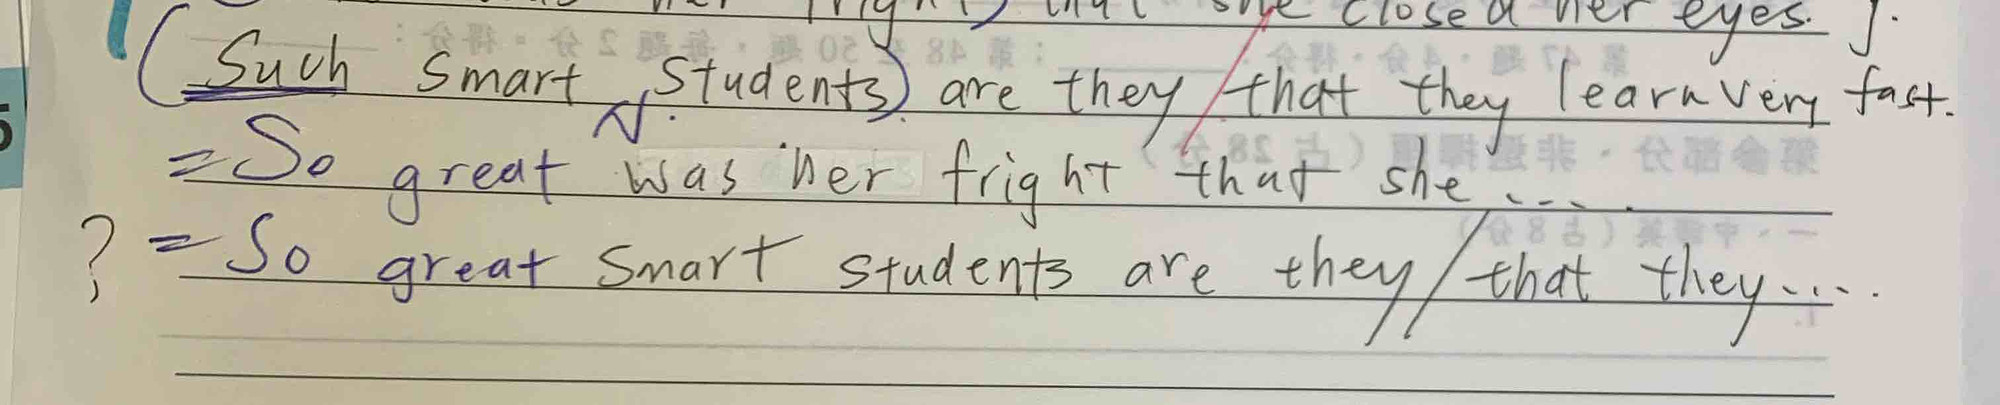 she closed her eyes.
(Such smart students) are they / that they learn very fast.
N.
= So great was her fright that she ....
? = So great smart students are they / that they ....